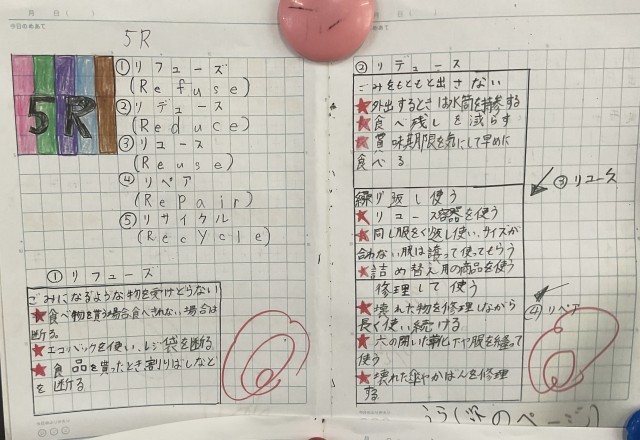 5R
5R
①リフューズ
(Refuse)
②リデュース
(Reduce)
③リユース
(Reuse)
④リペア
(RePair)
⑤リサイクル
(RecYcle)
①リフューズ
ごみになるような物を受けとらない
★食べ物を買う場合食べきれない場合は
断る
★エコバックを使い、レジ袋を断る
★食品を買ったとき割りばしなど
を断る
②リデュース
ごみをもともと出さない
★外出するときは水筒を持参する
★食べ残しを減らす
★賞味期限を気にして早めに
食べる
③リユース
繰り返し使う
★リユース容器を使う
★同じ服をくり返し使い、サイズが
合わない服は譲って使ってもらう
★詰め替え用の商品を使う
④リペア
修理して使う
★壊れた物を修理しながら
長く使い続ける
★穴の開いた靴下や服を縫って
使う
★壊れた傘やかばんを修理
する